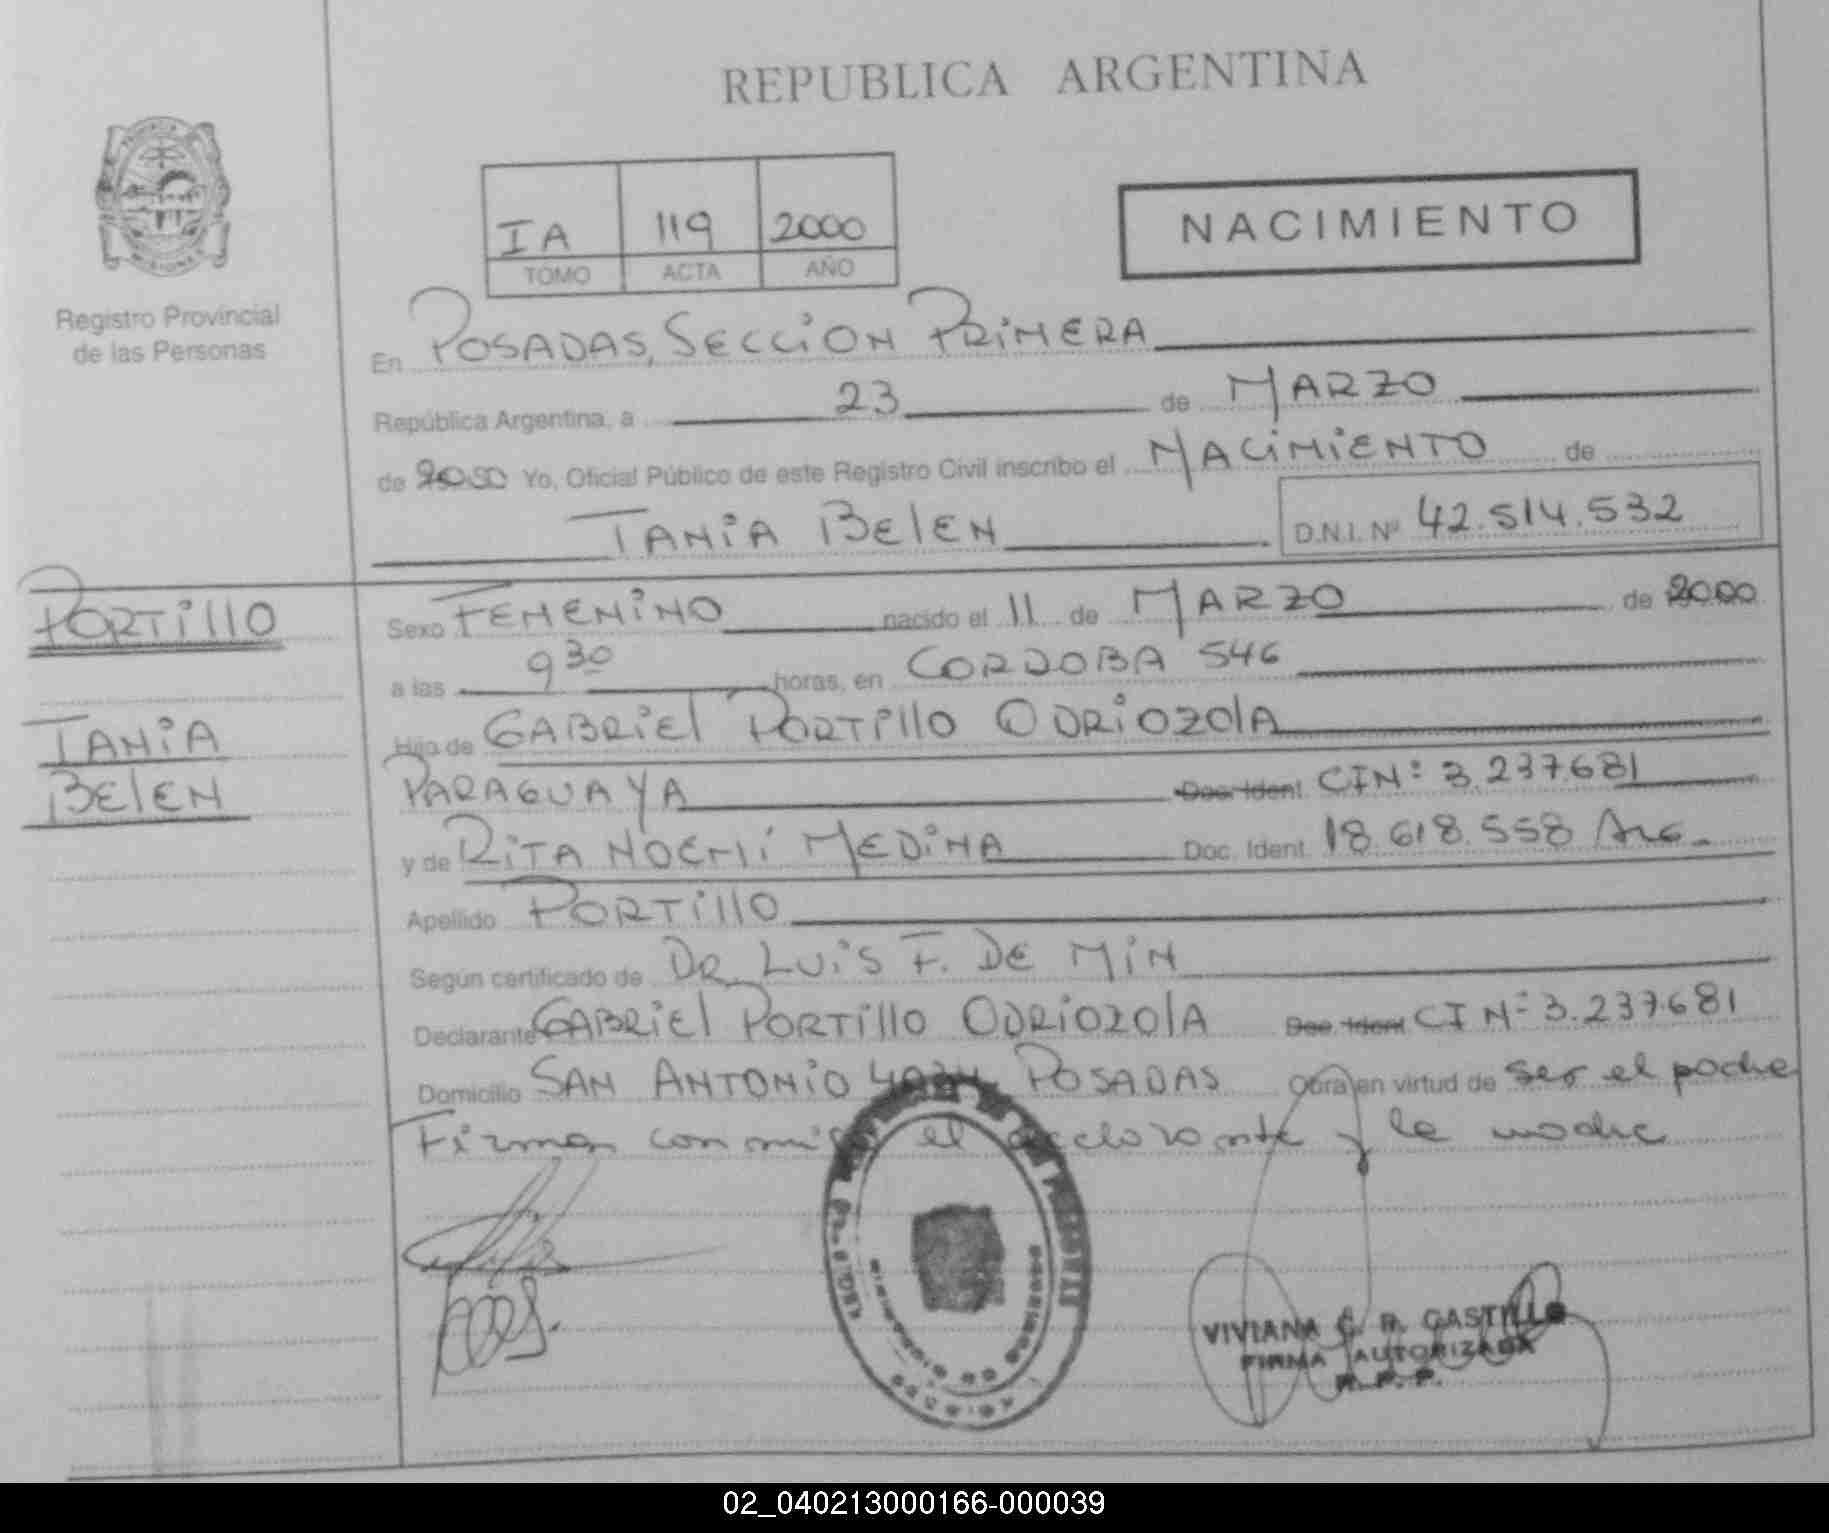 REPUBLICA ARGENTINA
IA 119 2000
TOMO ACTA AÑO
NACIMIENTO
MISIONES
Registro Provincial
de las Personas
En POSADAS, SECCION PRIMERA
República Argentina, a 23 de MARZO
de 2000 Yo, Oficial Público de este Registro Civil inscribo el NACIMIENTO de
TANIA BELEN D.N.I. Nº 42.514.532
PORTILLO
TANIA
BELEN
Sexo FEMENINO nacido el 11 de MARZO de 2000
a las 9 30 horas, en CORDOBA 546
Hijo de GABRIEL PORTILLO ODRIOZOLA
PARAGUAYA Doc. Ident. CIN: 3.237.681
y de RITA NOEMI MEDINA Doc. Ident. 18.618.558 ARG.
Apellido PORTILLO
Según certificado de DR. LUIS F. DE MIN
Declarante GABRIEL PORTILLO ODRIOZOLA Doc. Ident CIN: 3.237.681
Domicilio SAN ANTONIO POSADAS Obra en virtud de ser el padre
Firman conmigo el declarante y la madre
VIVIANA C. R. CASTILLO
FIRMA AUTORIZADA
R. P. P.
02_040213000166-000039